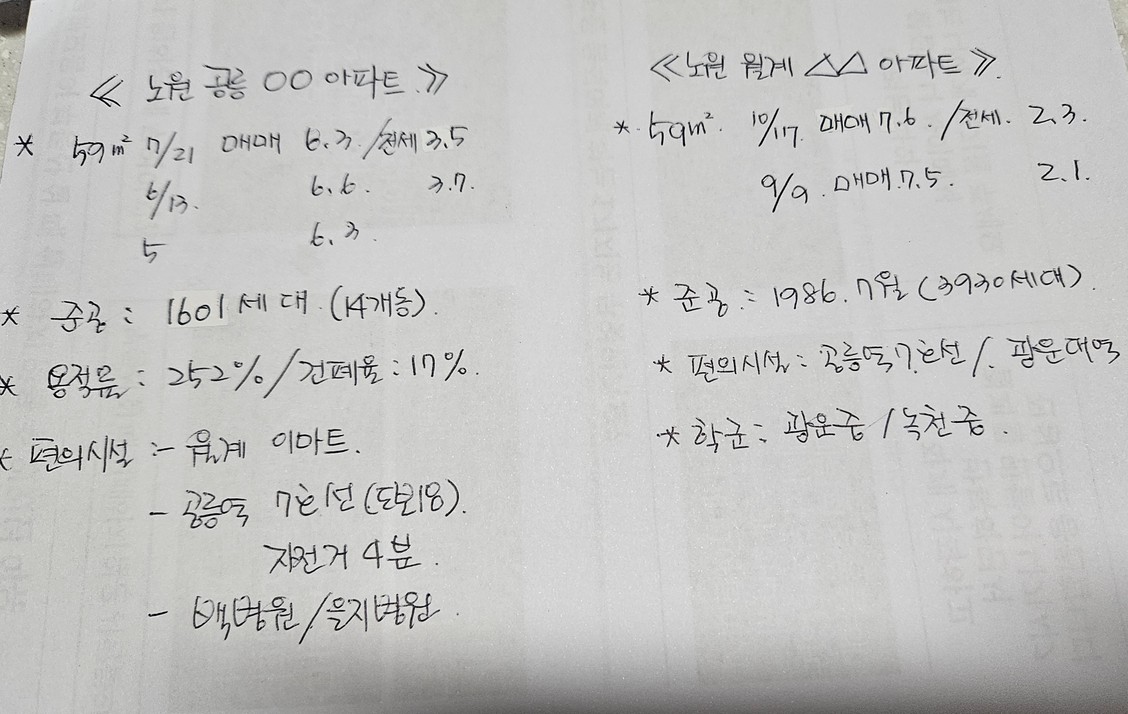 ≪ 노원 공릉 ○○ 아파트 ≫
* 59m² 7/21 매매 6.3 / 전세 3.5
6/13. 6.6. 3.7.
5 6.3.
* 준공 : 1601세대 (14개동).
* 용적률 : 252% / 건폐율 : 17%.
* 편의시설 :- 월계 이마트.
- 공릉역 7호선 (도보18).
자전거 4분.
- 백병원 / 을지병원.
≪ 노원 월계 △△ 아파트 ≫.
* 59m². 10/17. 매매 7.6. / 전세. 2.3.
9/9. 매매. 7.5. 2.1.
* 준공 : 1986. 7월 (3930세대).
* 편의시설 : 공릉역 7호선 /. 광운대역
* 학군 : 광운중 / 녹천중.